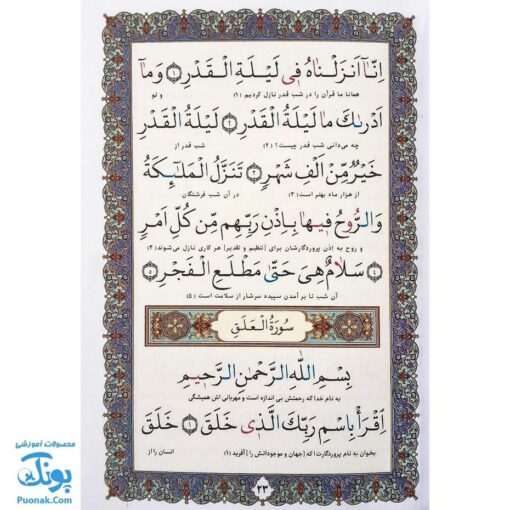 اِنّا اَنزَلناهُ فی لَیلَةِ القَدرِ ١ وَما
همانا ما قرآن را در شب قدر نازل کردیم (١) و تو
اَدرىٰكَ ما لَیلَةُ القَدرِ ٢ لَیلَةُ القَدرِ
چه می‌دانی شب قدر چیست؟! (٢) شب قدر از
خَیرٌ مِن اَلفِ شَهرٍ ٣ تَنَزَّلُ المَلٰئِكَةُ
از هزار ماه بهتر است؛ (٣) در آن شب فرشتگان
وَالرُّوحُ فیها بِاِذنِ رَبِّهِم مِن كُلِّ اَمرٍ
و روح به اذن پروردگارشان برای [تنظیم و تقدیر] هر کاری نازل می‌شوند؛ (۴)
٤ سَلامٌ هِیَ حَتّىٰ مَطلَعِ الفَجرِ ٥
آن شب تا بر آمدن سپیده سرشار از سلامت است (۵)
سُورَةُ الْعَلَقِ
بِسمِ اللّٰهِ الرَّحمٰنِ الرَّحیمِ
به نام خدا که رحمتش بی اندازه است و مهربانی اش همیشگی
اِقرَأ بِاسمِ رَبِّكَ الَّذی خَلَقَ ١ خَلَقَ
بخوان به نام پروردگارت! که [جهان و موجوداتش را] آفرید (١) انسان را از
٢٣
محصولات آموزشی
پونک
Puonak.Com